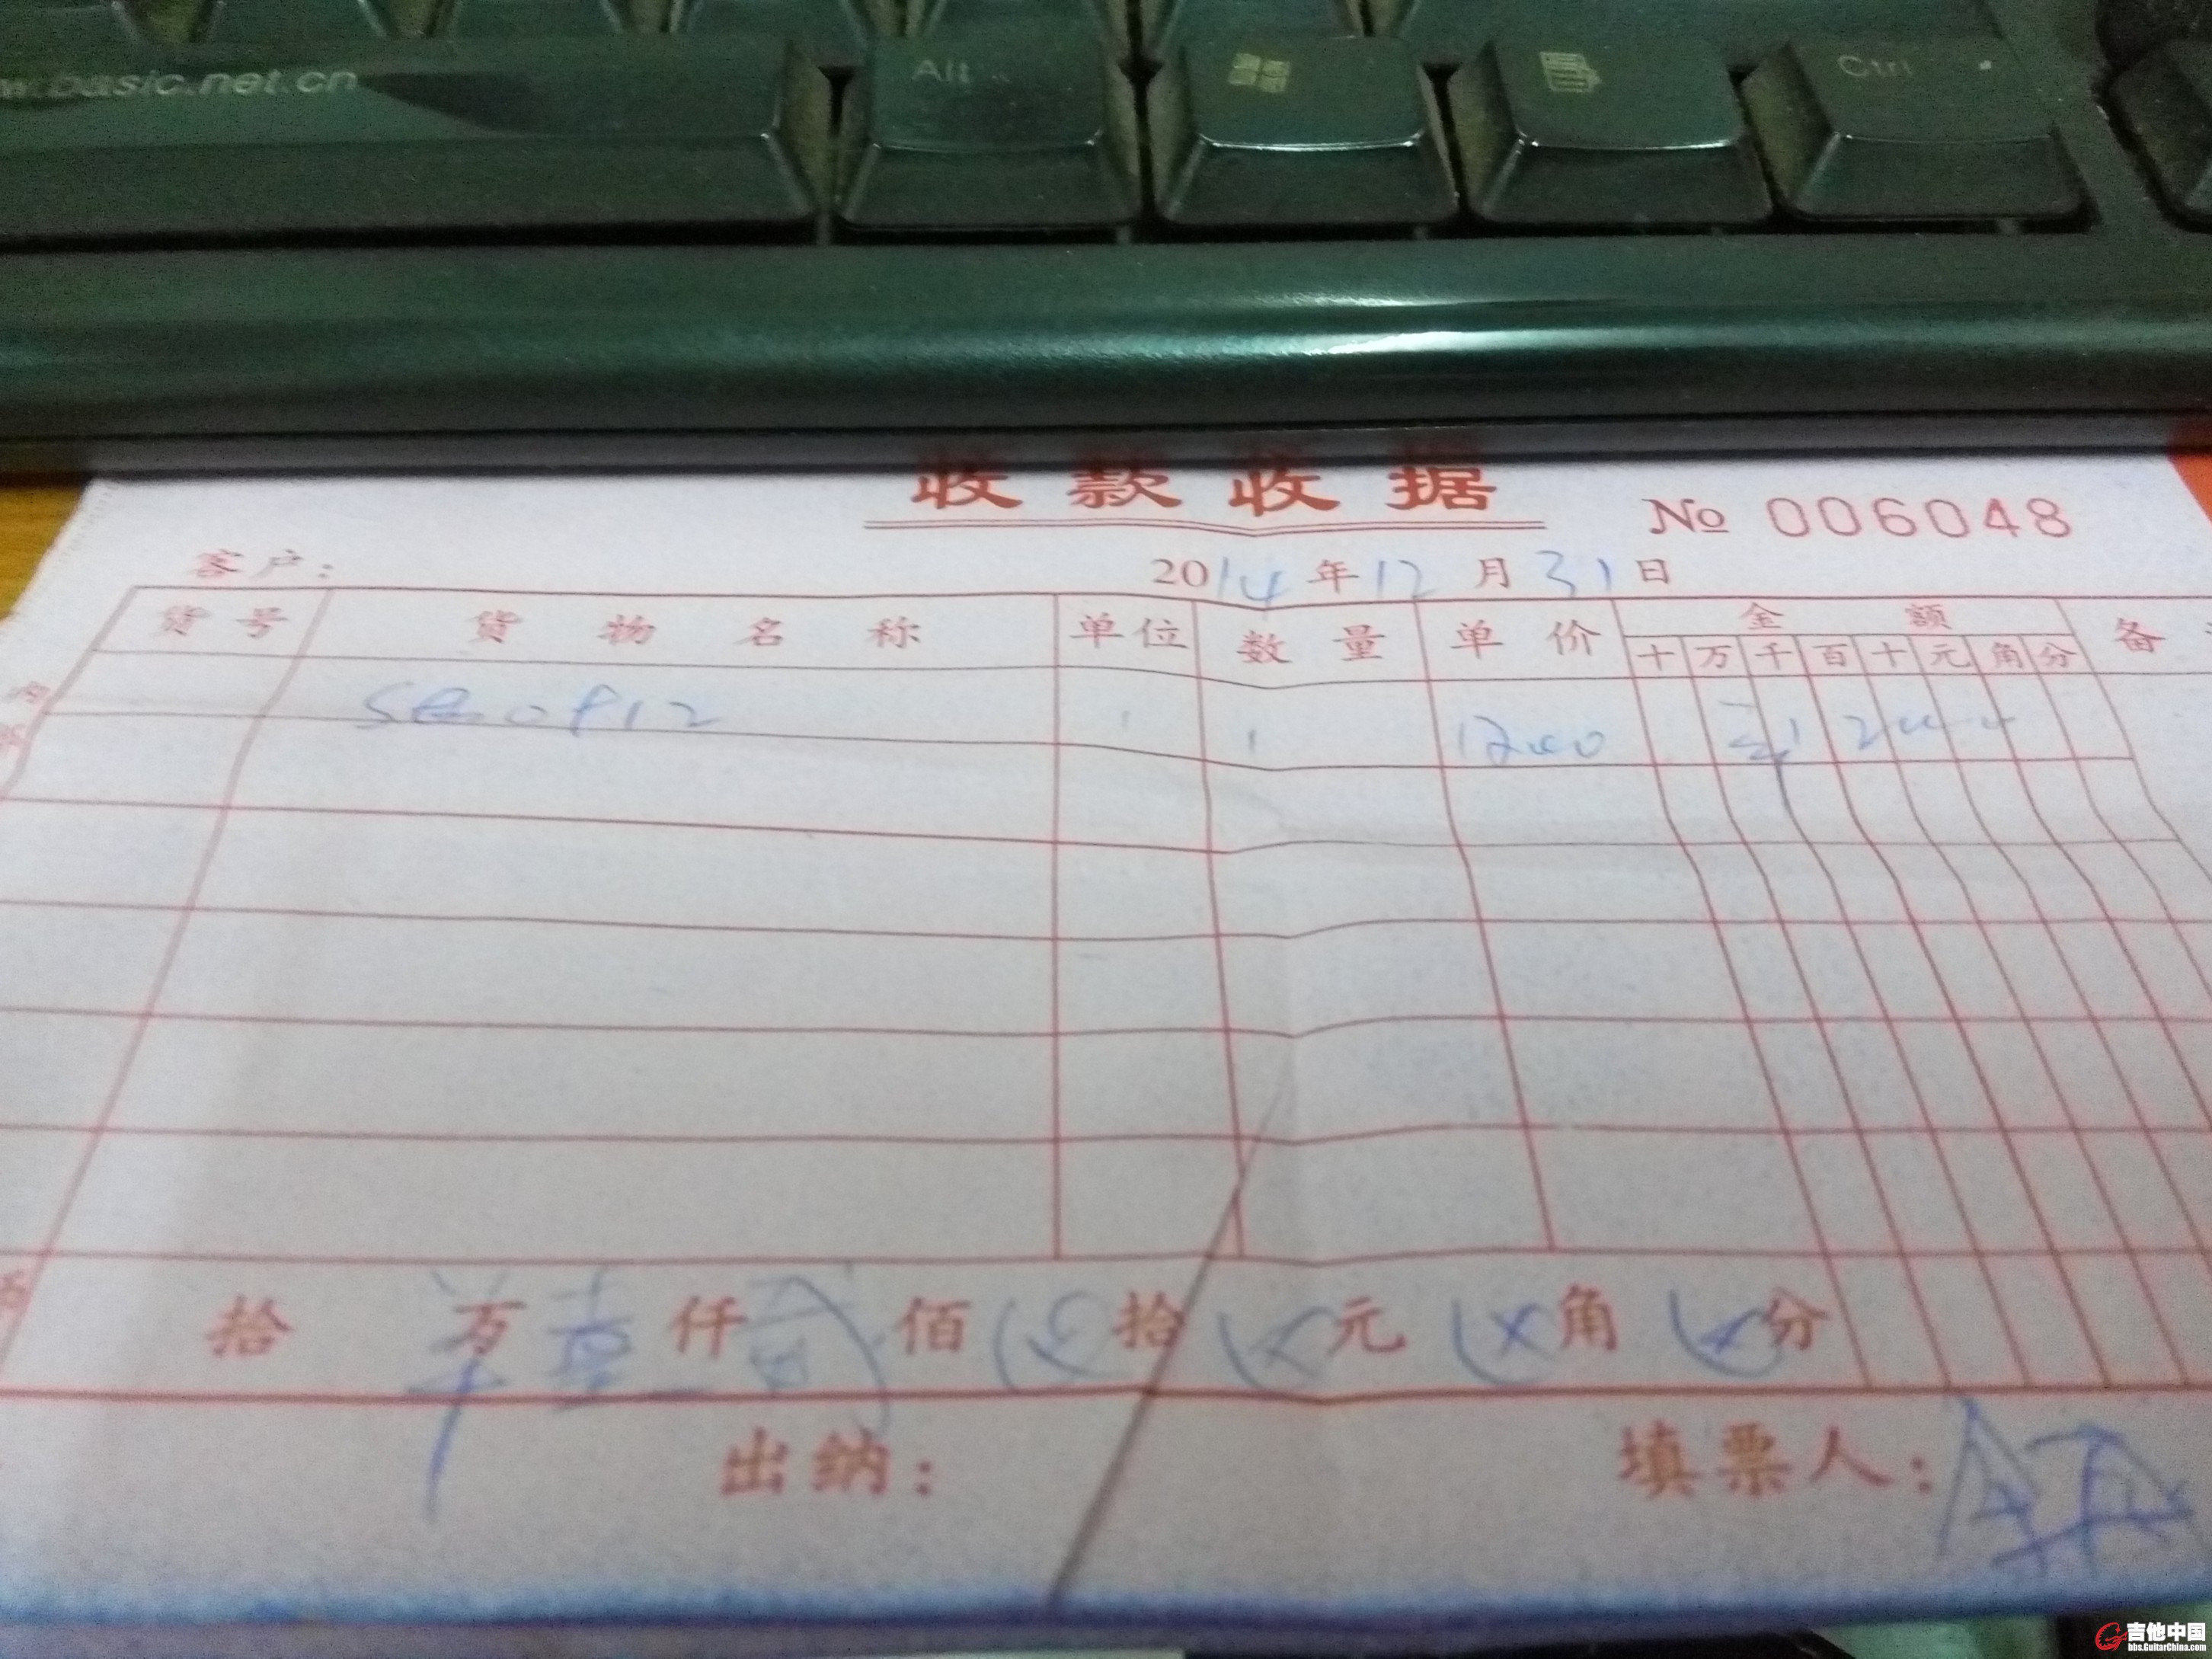 w.basic.net.cn
Alt
Ctrl
收款收据
No 006048
客户:
2014年12月31日
货号 货物名称 单位 数量 单价 金额 备
十 万 千 百 十 元 角 分
1 1 1200
拾 万 壹 仟 佰 拾 元 角 分
出纳:
填票人:
吉他中国
bbs.GuitarChina.com